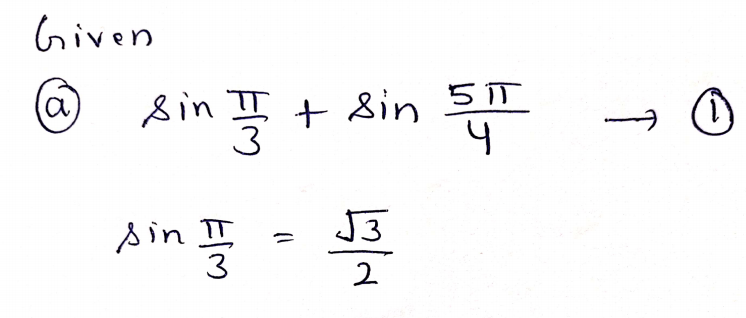 Given
ⓐ sin π/3 + sin 5π/4 → ①
sin π/3 = √3/2